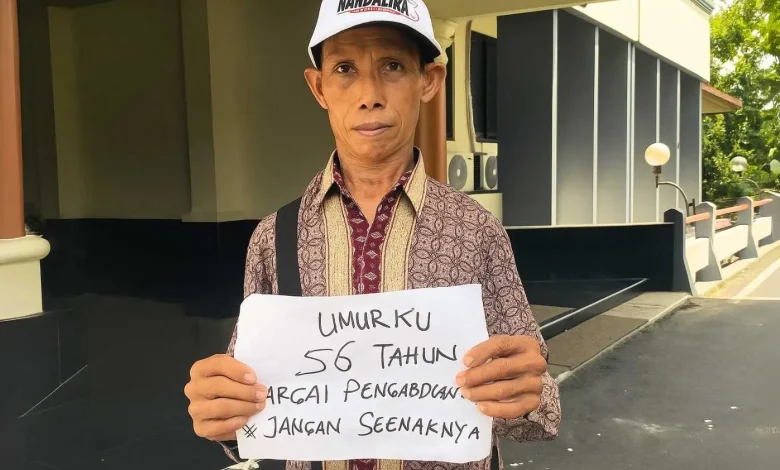 NANDALIKA
UMURKU
56 TAHUN
ARGAI PENGABDIAN
# JANGAN SEENAKNYA